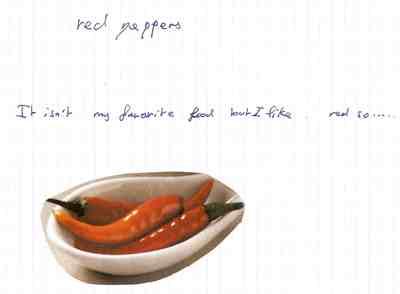 red peppers
It isn't my favorite food but I like red so.....